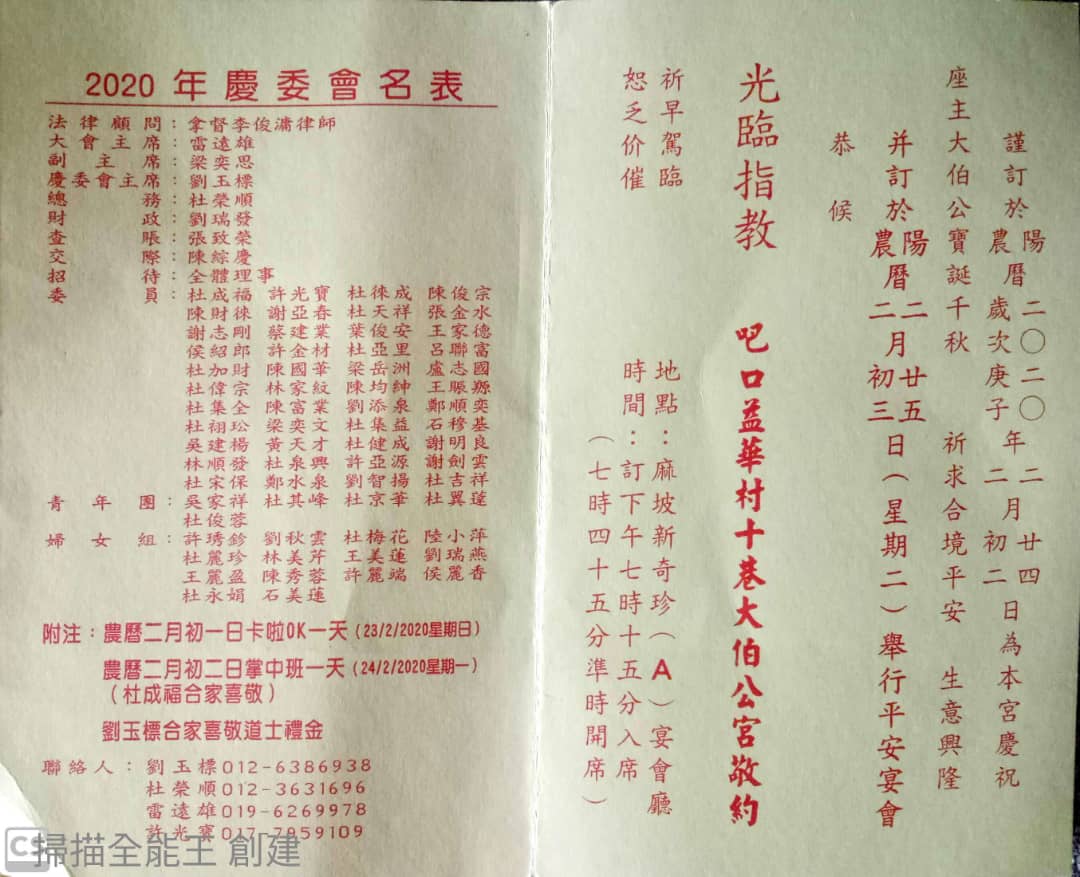 2020 年慶委會名表
法律顧問：拿督李俊滽律師
大會主席：雷遠雄
副主席：梁奕思
慶委會主席：劉玉標
總務：杜榮順
財政：劉瑞發
查賬：張致榮
交際：陳綜慶
招待：全體理事
委員：杜成福 許光寶 杜徠成 陳俊宗
陳財徠 謝亞春 杜天祥 張金水
謝志剛 蔡建業 葉俊安 王家德
侯紹郎 許金材 杜亞里 呂聯富
杜加財 陳國華 梁岳洲 盧志國
杜偉宗 林家紋 陳均紳 王賑縣
杜集全 陳富業 劉添泉 鄭順奕
杜祤玜 梁奕文 杜集益 石穆基
吳建楊 黃天才 杜健成 謝明良
林順發 杜泉興 許亞源 謝劍雲
杜宋保 鄭水泉 劉智揚 杜吉祥
青年團：吳家祥 杜其峰 杜京華 杜異蓬
杜俊蓉
婦女組：許琇鉁 劉秋雲 杜梅花 陸小萍
杜麗珍 林美芹 王美蓮 劉瑞燕
王麗盈 陳秀蓉 許麗端 侯麗香
杜永娟 石美蓮
附注：農曆二月初一日卡啦OK一天（23/2/2020星期日）
農曆二月初二日掌中班一天（24/2/2020星期一）
（杜成福合家喜敬）
劉玉標合家喜敬道士禮金
聯絡人：劉玉標012-6386938
杜榮順012-3631696
雷遠雄019-6269978
許光寶017-7959109
謹訂於陽曆二〇二〇年二月廿四日為本宮慶祝
農歲次庚子二初二
座主大伯公寶誕千秋 祈求合境平安 生意興隆
并訂於陽曆二月廿五日（星期二）舉行平安宴會
農二初三
恭候
光臨指教
吧口益華村十巷大伯公宮敬約
祈早駕臨
恕乏价催
地點：麻坡新奇珍（A）宴會廳
時間：訂下午七時十五分入席
（七時四十五分準時開席）
掃描全能王 創建
CS